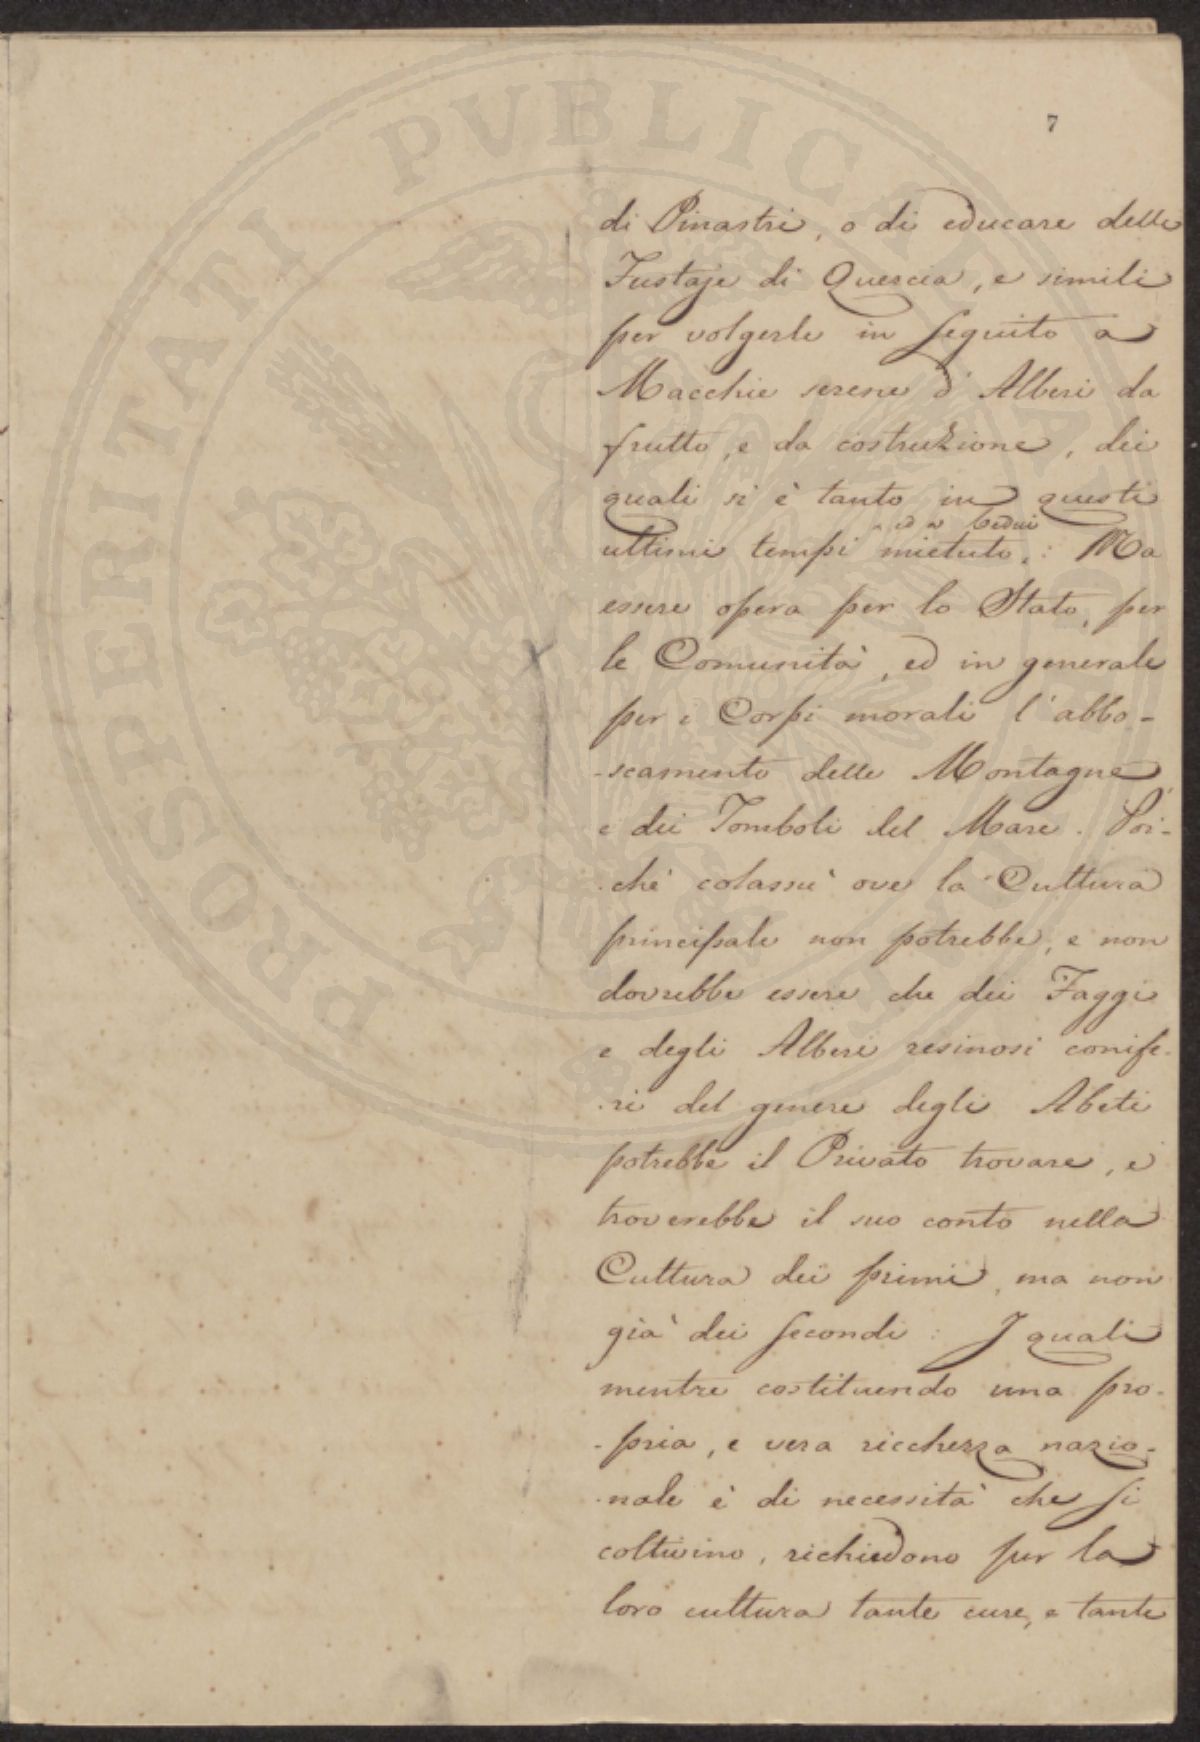 7
di Pinastri, o di educare delle
Fustaje di Quercia, e simili
per volgerle in seguito a
Macchie serene d'Alberi da
frutto, e da costruzione, dei
quali si è tanto in questi
ed a Cedui
ultimi tempi mietuto.: Ma
essere opera per lo Stato, per
le Comunità, ed in generale
per i Corpi morali l'abbo-
-scamento delle Montagne
e dei Tomboli del Mare. Poi-
-chè colassù ove la Cultura
principale non potrebbe, e non
dovrebbe essere che dei Faggi
e degli Alberi resinosi conife-
-ri del genere degli Abeti
potrebbe il Privato trovare, e
troverebbe il suo conto nella
Cultura dei primi, ma non
già dei secondi: I quali
mentre costituendo una pro-
-pria, e vera ricchezza nazio-
-nale è di necessità che si
coltivino, richiedono per la
loro cultura tante cure, e tante
PROSPERITATI PVBLICAE